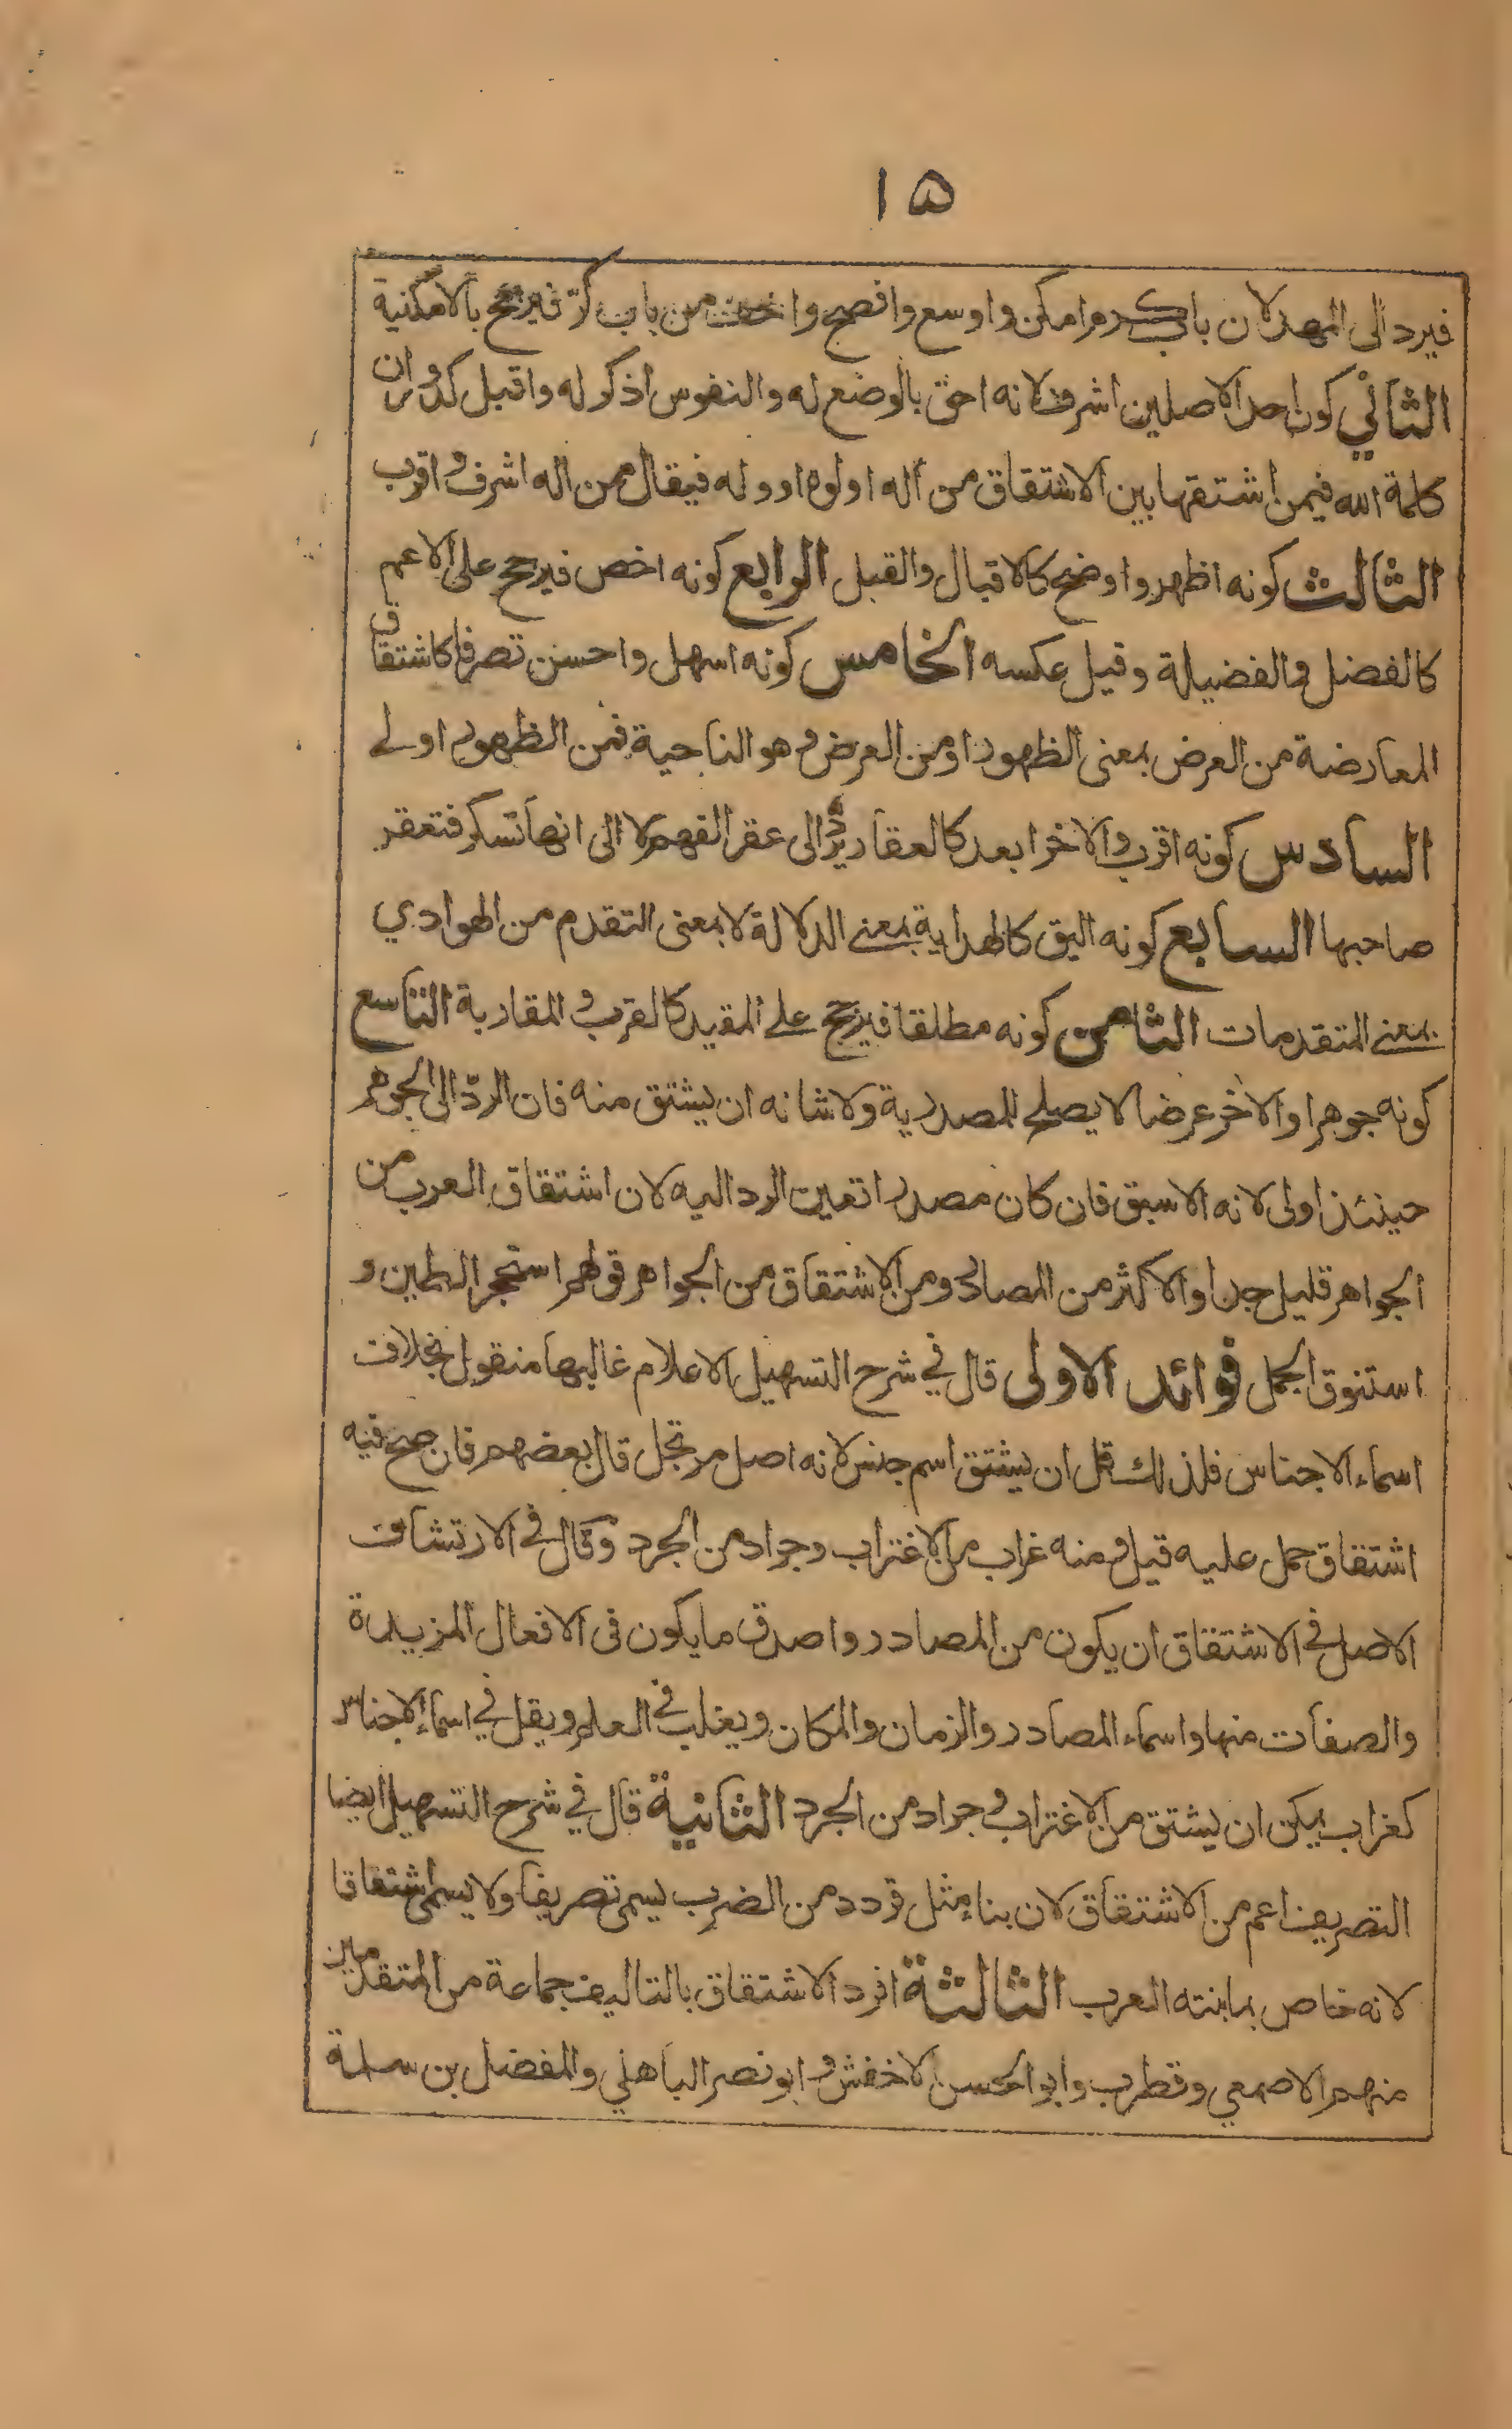 ١٥
فيرد الى المهد لان باب كرم امكن واوسع وافصح واخف من باب كرّ فيرجح بالامكنية
الثاني كون احد الاصلين اشرف لانه احق بالوضع له والنفوس اذكر له واقبل كدوران
كلمة الله فيمن اشتقها بين الاشتقاق من اله او لوه او وله فيقال من اله اشرف واقرب
الثالث كونه اظهر واوضح كالاقبال والقبل الرابع كونه اخص فيرجح على الاعم
كالفضل والفضيلة وقيل عكسه الخامس كونه اسهل واحسن تصرفا كاشتقاق
المعارضة من العرض بمعنى الظهور او من العرض وهو الناحية فمن الظهور اولى
السادس كونه اقرب والاخر ابعد كالعقار يرد الى عقر الفهم لا الى انها تسكر فتعقر
صاحبها السابع كونه اليق كالهداية بمعنى الدلالة لا بمعنى التقدم من الهوادي
بمعنى المتقدمات الثامن كونه مطلقا فيرجح على المقيد كالقرب والمقاربة التاسع
كونه جوهرا والاخر عرضا لا يصلح للمصدرية ولا شانه ان يشتق منه فان الردّ الى الجوهر
حينئذ اولى لانه الاسبق فان كان مصدرا تعين الرد اليه لان اشتقاق العرب من
الجواهر قليل جدا والاكثر من المصادر ومن الاشتقاق من الجواهر قولهم استحجر الطين و
استنوق الجمل فوائد الاولى قال في شرح التسهيل الاعلام غالبها منقول بخلاف
اسماء الاجناس فلذلك قل ان يشتق اسم جنس لانه اصل مرتجل قال بعضهم فان صح فيه
اشتقاق حمل عليه قيل ومنه غراب من الاغتراب وجراد من الجرد وقال في الارتشاف
الاصل في الاشتقاق ان يكون من المصادر واصدق ما يكون في الافعال المزيدة
والصفات منها واسماء المصادر والزمان والمكان ويغلب في العلم ويقل في اسماء الاجناس
كغراب يمكن ان يشتق من الاغتراب وجراد من الجرد الثانية قال في شرح التسهيل ايضا
التصريف اعم من الاشتقاق لان بناء مثل قردد من الضرب يسمى تصريفا ولا يسمى اشتقاقا
لانه خاص بما بنته العرب الثالثة افرد الاشتقاق بالتاليف جماعة من المتقدمين
منهم الاصمعي وقطرب وابو الحسن الاخفش وابو نصر الباهلي والمفضل بن سلمة